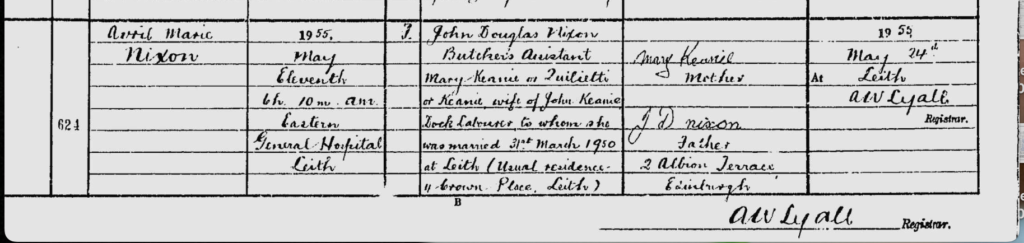 624
Avril Marie
Nixon
1955.
May
Eleventh
6h. 10m. A.M.
Eastern
General Hospital
Leith
F.
John Douglas Nixon
Butcher's Assistant
Mary Keanie or Quilietti
or Keanie wife of John Keanie
Dock Labourer to whom she
was married 31st March 1950
at Leith (Usual residence-
11 Crown Place, Leith)
Mary Keanie
Mother
J D Nixon
Father
2 Albion Terrace
Edinburgh
1955
May 24th
At Leith
AW Lyall
Registrar.
B
AW Lyall Registrar.